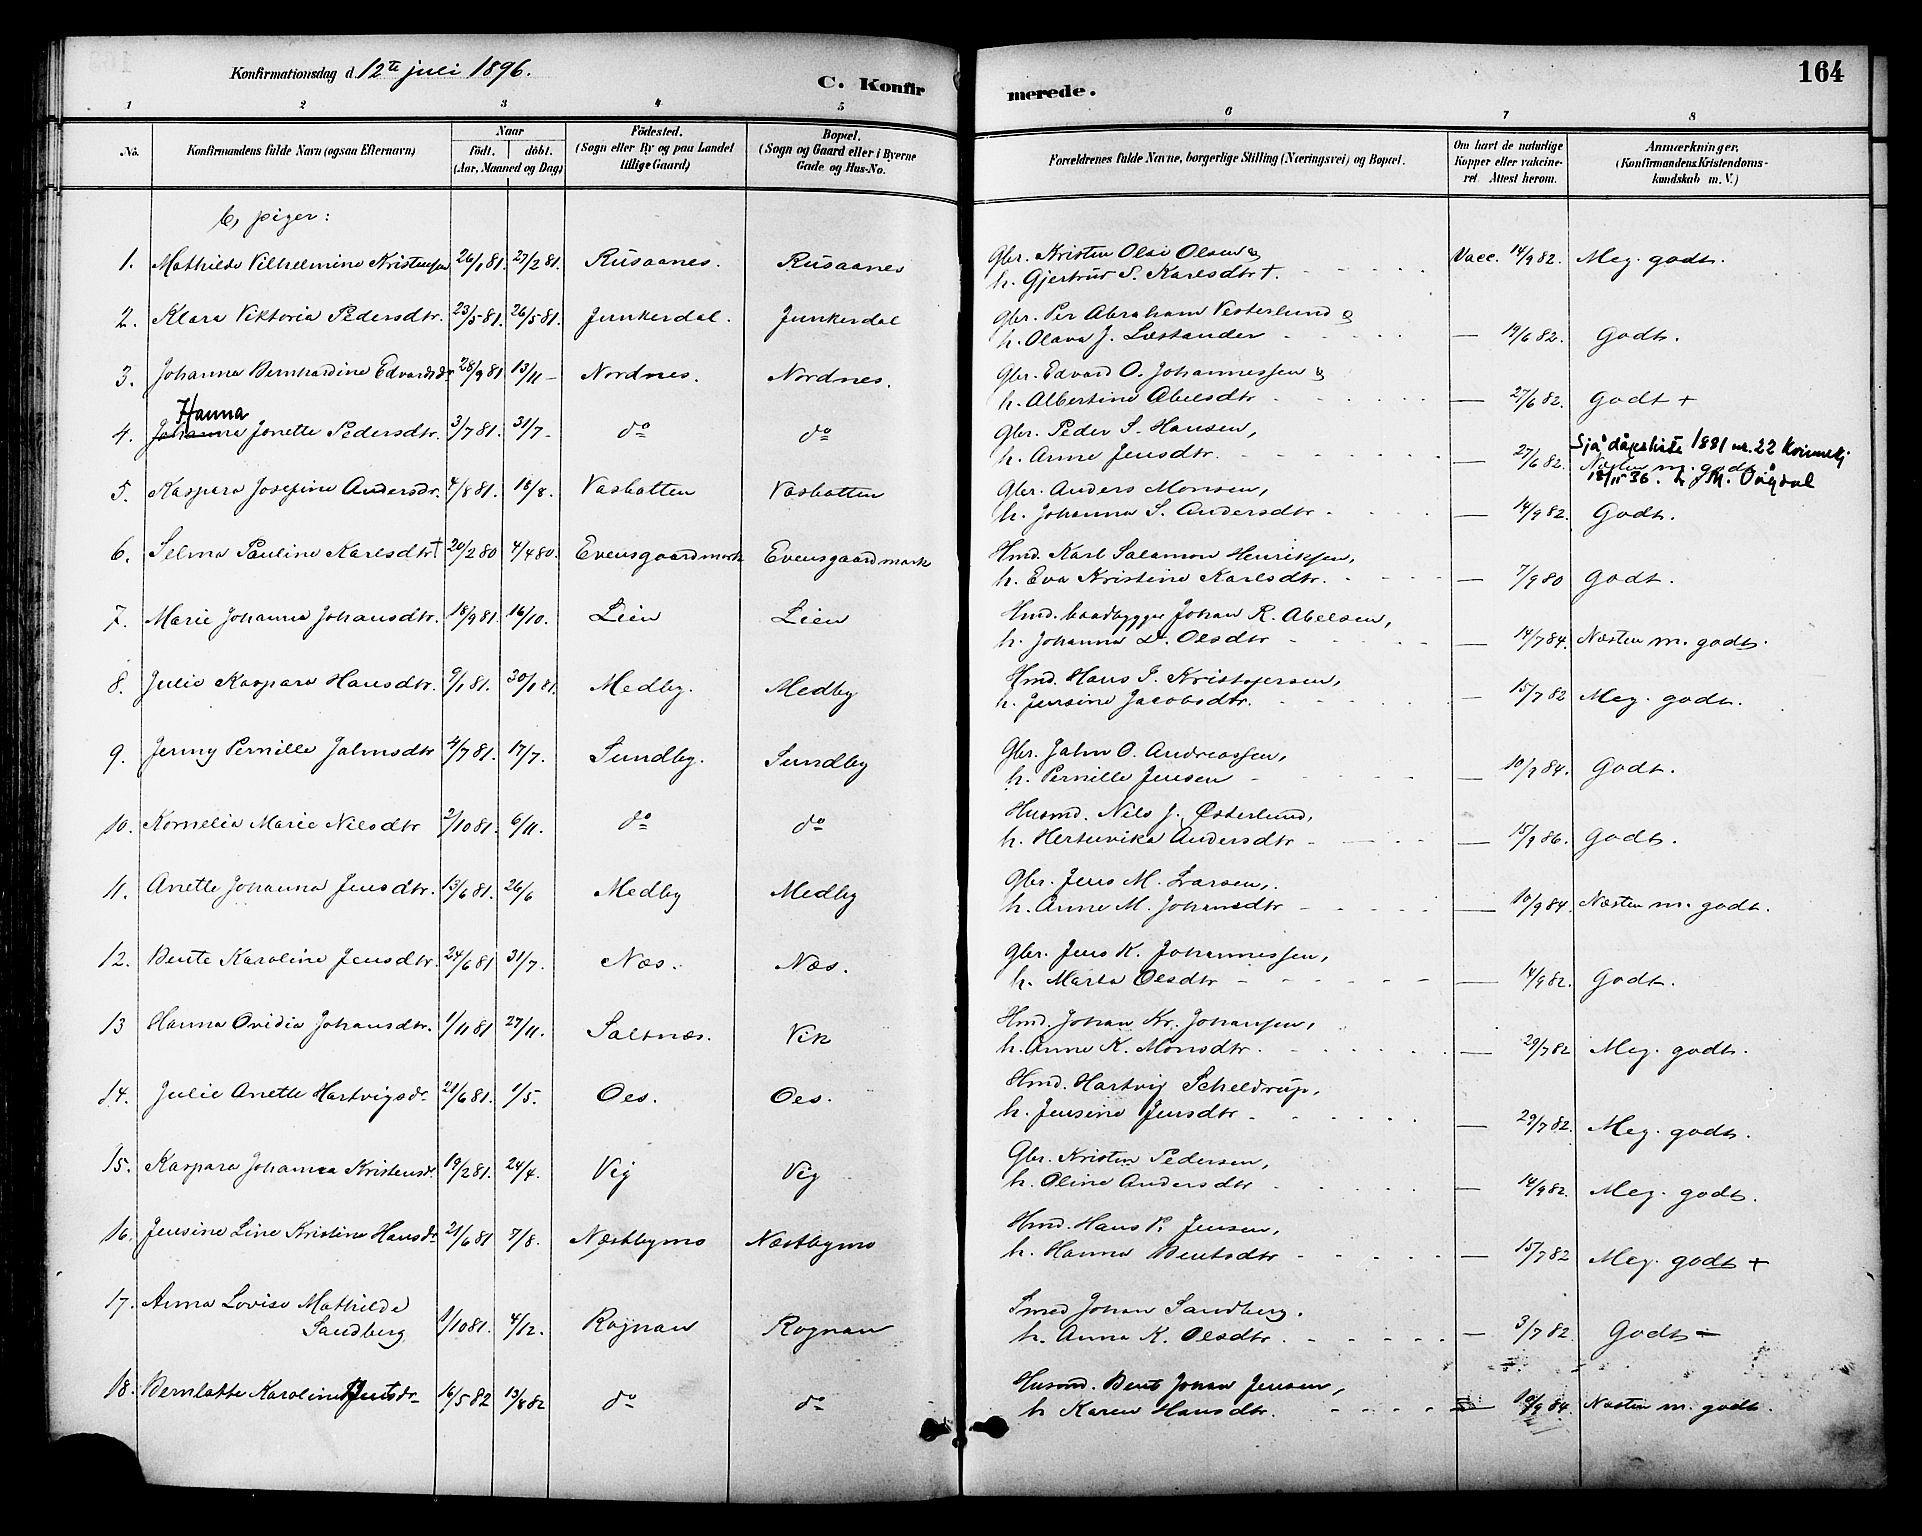 164
Konfirmationsdag d. 12te juli 1896.
C. Konfirmerede.
1 2 3 4 5 6 7 8
No. Konfirmandens fulde Navn (ogsaa Efternavn) Naar födt. döbt. (Aar, Maaned og Dag) Födested. (Sogn eller By og paa Landet tillige Gaard) Bopæl. (Sogn og Gaard eller i Byerne Gade og Hus-No. Forældrenes fulde Navne, borgerlige Stilling (Næringsvei) og Bopæl. Om havt de naturlige Kopper eller vakcineret. Attest herom. Anmærkninger. (Konfirmandens Kristendomskundskab m. V.)
b, piger:
1. Mathilde Vilhelmine Kristensen 26/1 81. 27/2 81. Rusaanes. Rusaanes Gbr. Kristen Olai Olsen & Vacc. 14/9 82. Meg. godt.
h. Gjertrud S. Karlsdtr †.
2. Klara Viktoria Pedersdtr. 23/5 81. 26/5 81. Junkerdal. Junkerdal Gbr. Per Abraham Vesterlund &
h. Olava J. Lestander — 19/6 82. Godt.
3. Johanna Bernhardine Edvardsdr 28/9 81 13/11 - Nordnes. Nordnes. Gbr. Edvard O. Johannessen &
h. Albertine Abelsdtr — 27/6 82. Godt +
Hanna
4. Johanna Jonette Pedersdtr. 3/7 81. 31/7 - do do Gbr. Peder S. Hansen,
h. Anne Jensdtr. — 27/6 82. Næsten m. godt.
Sjå dåpsliste 1881 nr. 22 Kvinnekj
18/11 36.
5. Kaspara Josefine Andersdr. 4/8 81. 18/8. Vasbotten Vasbotten Gbr. Anders Monsen,
h. Johanna S. Andersdtr — 14/9 82. Godt.
6. Selma Pauline Karlsdtr † 20/2 80 4/4 80. Evensgaardmark Evensgaardmark Hmd. Karl Salamon Henriksen,
h. Eva Kristine Karlsdtr. — 7/9 80 Godt.
7. Marie Johanna Johansdtr. 18/9 81. 16/10. Lien Lien Hmd. baadbygger Johan R. Abelsen,
h. Johanna D. Olsdtr — 14/7 84. Næsten m. godt.
8. Julie Kaspara Hansdtr. 9/1 81. 30/1 81. Medby. Medby Hmd. Hans J. Kristofersen,
h. Jensine Jacobsdtr. — 15/7 82 Meg. godt.
9. Jenny Pernille Jalmsdtr 4/7 81. 17/7. Sundby. Sundby Gbr. Jalm O. Andreassen,
h. Pernille Jensen — 10/9 84. Godt.
10. Kornelia Marie Nilsdtr 2/10 81. 6/11. do do Husmd. Nils J. Østerlund,
h. Hertuvika Andersdtr — 15/9 86. Godt.
11. Anette Johanna Jensdtr. 13/6 81. 26/6 Medby Medby Gbr. Jens M. Larsen,
h. Anne M. Johansdtr — 10/9 84. Næsten m. godt.
12. Bente Karoline Jensdtr. 24/6 81 31/7. Næs. Næs. Gbr. Jens K. Johannessen,
h. Marta Olsdtr — 14/9 82. Godt.
13 Hanna Ovidia Johansdtr. 1/11 81 27/11. Saltnæs. Vik Hmd. Johan Kr. Johansen,
h. Anne K. Monsdtr. — 29/7 82 Meg. godt.
14. Julie Anette Hartvigsdr 21/6 81. 1/5. Oes. Oes. Hmd. Hartvig Scheldrup,
h. Jensine Jensdtr. — 29/7 82. Meg. godt.
15. Kaspara Johanna Kristensdr. 19/2 81. 24/4. Vig Vig Gbr. Kristen Pedersen,
h. Oline Andersdtr — 14/9 82. Meg. godt.
16. Jensine Line Kristine Hansdr 21/6 81 7/8. Næstbymo Næstbymo Hmd. Hans P. Jensen,
h. Hanna Bentsdtr — 15/7 82 Meg. godt +
17. Anna Lovise Mathilde
Sandberg 1/10 81. 4/12. Rognan Rognan Smed Johan Sandberg.
h. Anna K. Olsdtr. — 3/7 82 Godt -
18. Bernlatte Karoline Bentsdr 16/5 82 13/8 82 do do Husmd. Bent Johan Jensen,
h Karen Hansdtr. — 10/9 84. Næsten m. godt.